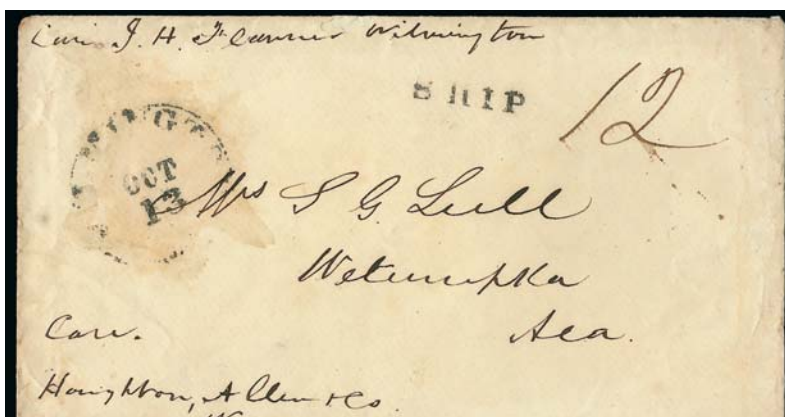 Care J. H. Flanner Wilmington
SHIP
12
OCT
13
Mrs S G Lull
Wetumpka
Ala.
Care.
Houghton, Allen & Co.